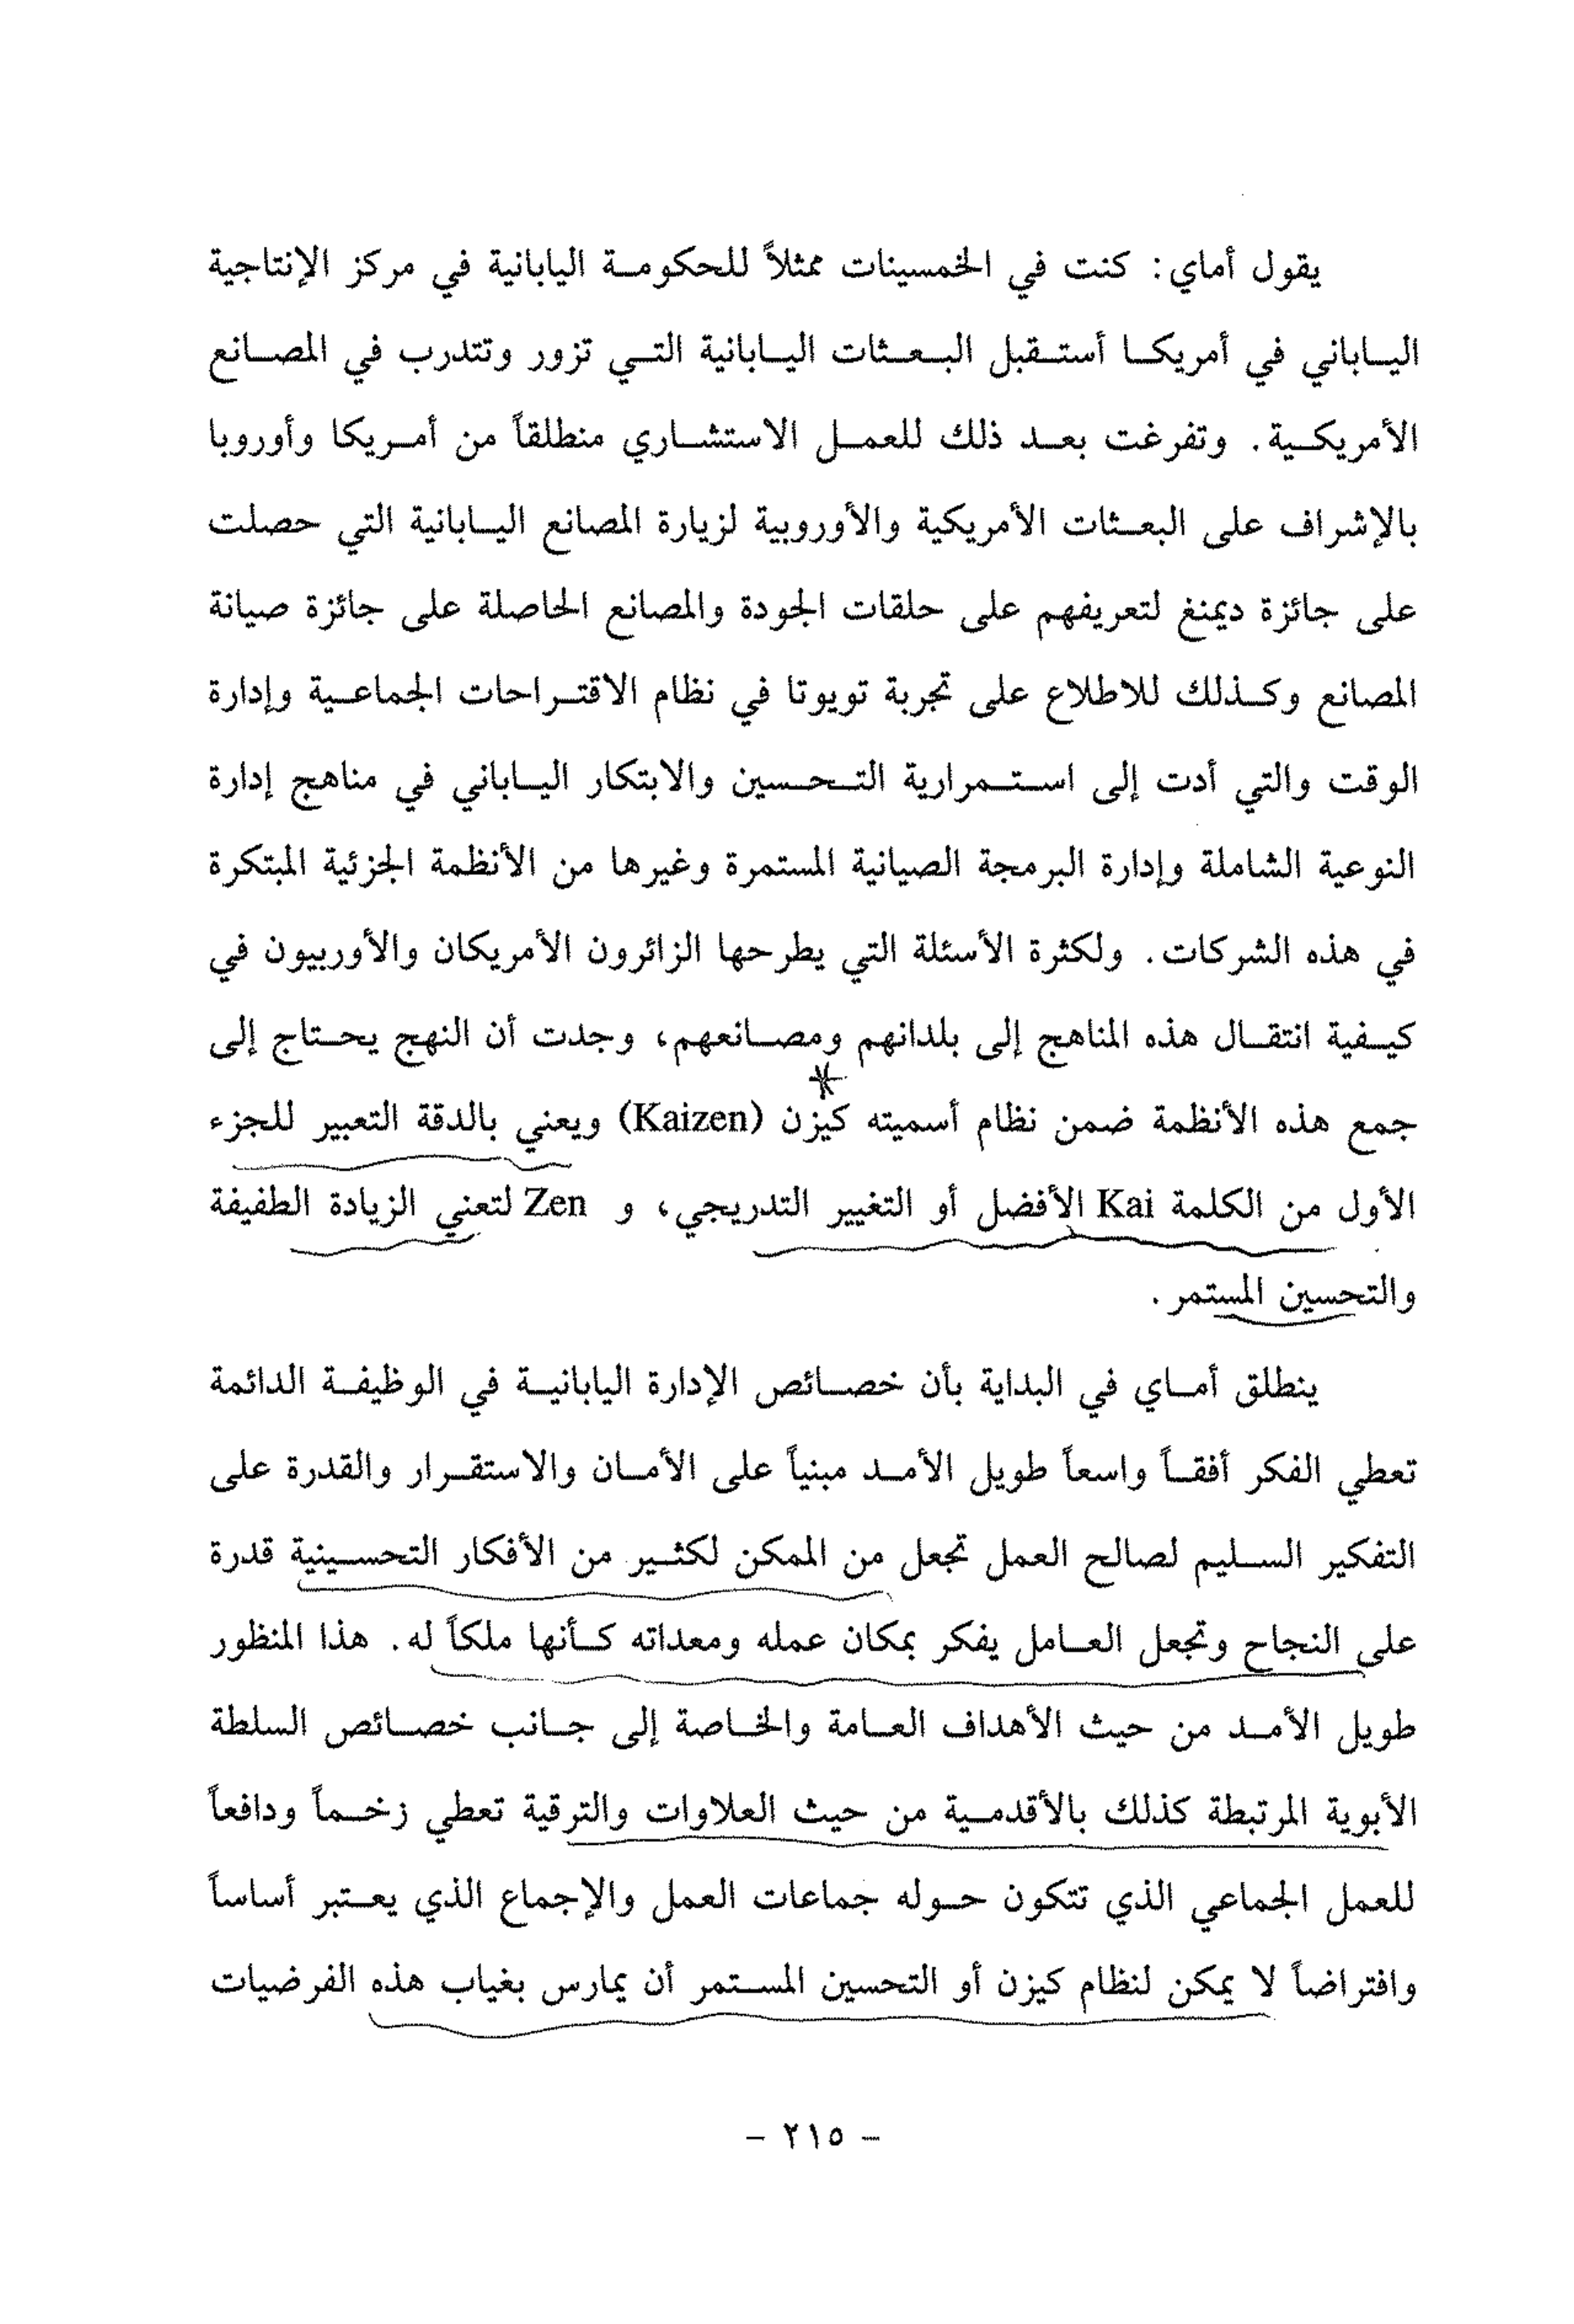 يقول أماي: كنت في الخمسينات ممثلاً للحكومة اليابانية في مركز الإنتاجية
الياباني في أمريكا أستقبل البعثات اليابانية التي تزور وتتدرب في المصانع
الأمريكية. وتفرغت بعد ذلك للعمل الاستشاري منطلقاً من أمريكا وأوروبا
بالإشراف على البعثات الأمريكية والأوروبية لزيارة المصانع اليابانية التي حصلت
على جائزة ديمنغ لتعريفهم على حلقات الجودة والمصانع الحاصلة على جائزة صيانة
المصانع وكذلك للاطلاع على تجربة تويوتا في نظام الاقتراحات الجماعية وإدارة
الوقت والتي أدت إلى استمرارية التحسين والابتكار الياباني في مناهج إدارة
النوعية الشاملة وإدارة البرمجة الصيانية المستمرة وغيرها من الأنظمة الجزئية المبتكرة
في هذه الشركات. ولكثرة الأسئلة التي يطرحها الزائرون الأمريكان والأوربيون في
كيفية انتقال هذه المناهج إلى بلدانهم ومصانعهم، وجدت أن النهج يحتاج إلى
جمع هذه الأنظمة ضمن نظام أسميته كيزن (Kaizen) ويعني بالدقة التعبير للجزء
الأول من الكلمة Kai الأفضل أو التغيير التدريجي، و Zen لتعني الزيادة الطفيفة
والتحسين المستمر.
ينطلق أماي في البداية بأن خصائص الإدارة اليابانية في الوظيفة الدائمة
تعطي الفكر أفقاً واسعاً طويل الأمد مبنياً على الأمان والاستقرار والقدرة على
التفكير السليم لصالح العمل تجعل من الممكن لكثير من الأفكار التحسينية قدرة
على النجاح وتجعل العامل يفكر بمكان عمله ومعداته كأنها ملكاً له. هذا المنظور
طويل الأمد من حيث الأهداف العامة والخاصة إلى جانب خصائص السلطة
الأبوية المرتبطة كذلك بالأقدمية من حيث العلاوات والترقية تعطي زخماً ودافعاً
للعمل الجماعي الذي تتكون حوله جماعات العمل والإجماع الذي يعتبر أساساً
وافتراضاً لا يمكن لنظام كيزن أو التحسين المستمر أن يمارس بغياب هذه الفرضيات
- ٢١٥ -